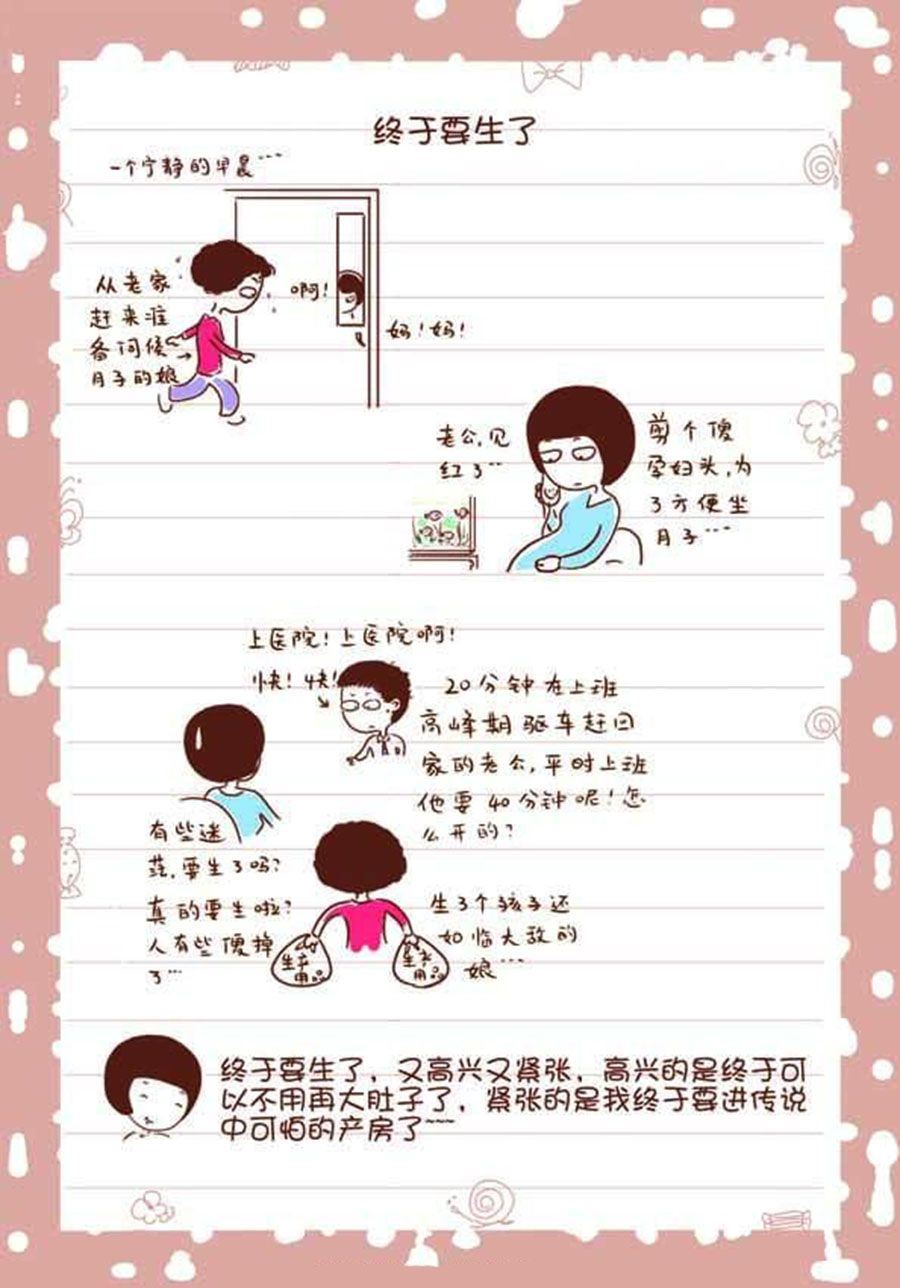 终于要生了
一个宁静的早晨~~~
从老家
赶来准
备伺候
月子的娘
啊!
妈!妈!
老公,见
红了~~
剪个傻
孕妇头,为
了方便坐
月子~~~
上医院!上医院啊!
快!快!
20分钟在上班
高峰期驱车赶回
家的老公,平时上班
他要40分钟呢!怎
么开的?
有些迷
茫,要生了吗?
真的要生啦?
人有些傻掉
了~~~
生产
用品
生产
用品
生了个孩子还
如临大敌的
娘~~~
终于要生了,又高兴又紧张,高兴的是终于可
以不用再大肚子了,紧张的是我终于要进传说
中可怕的产房了~~~